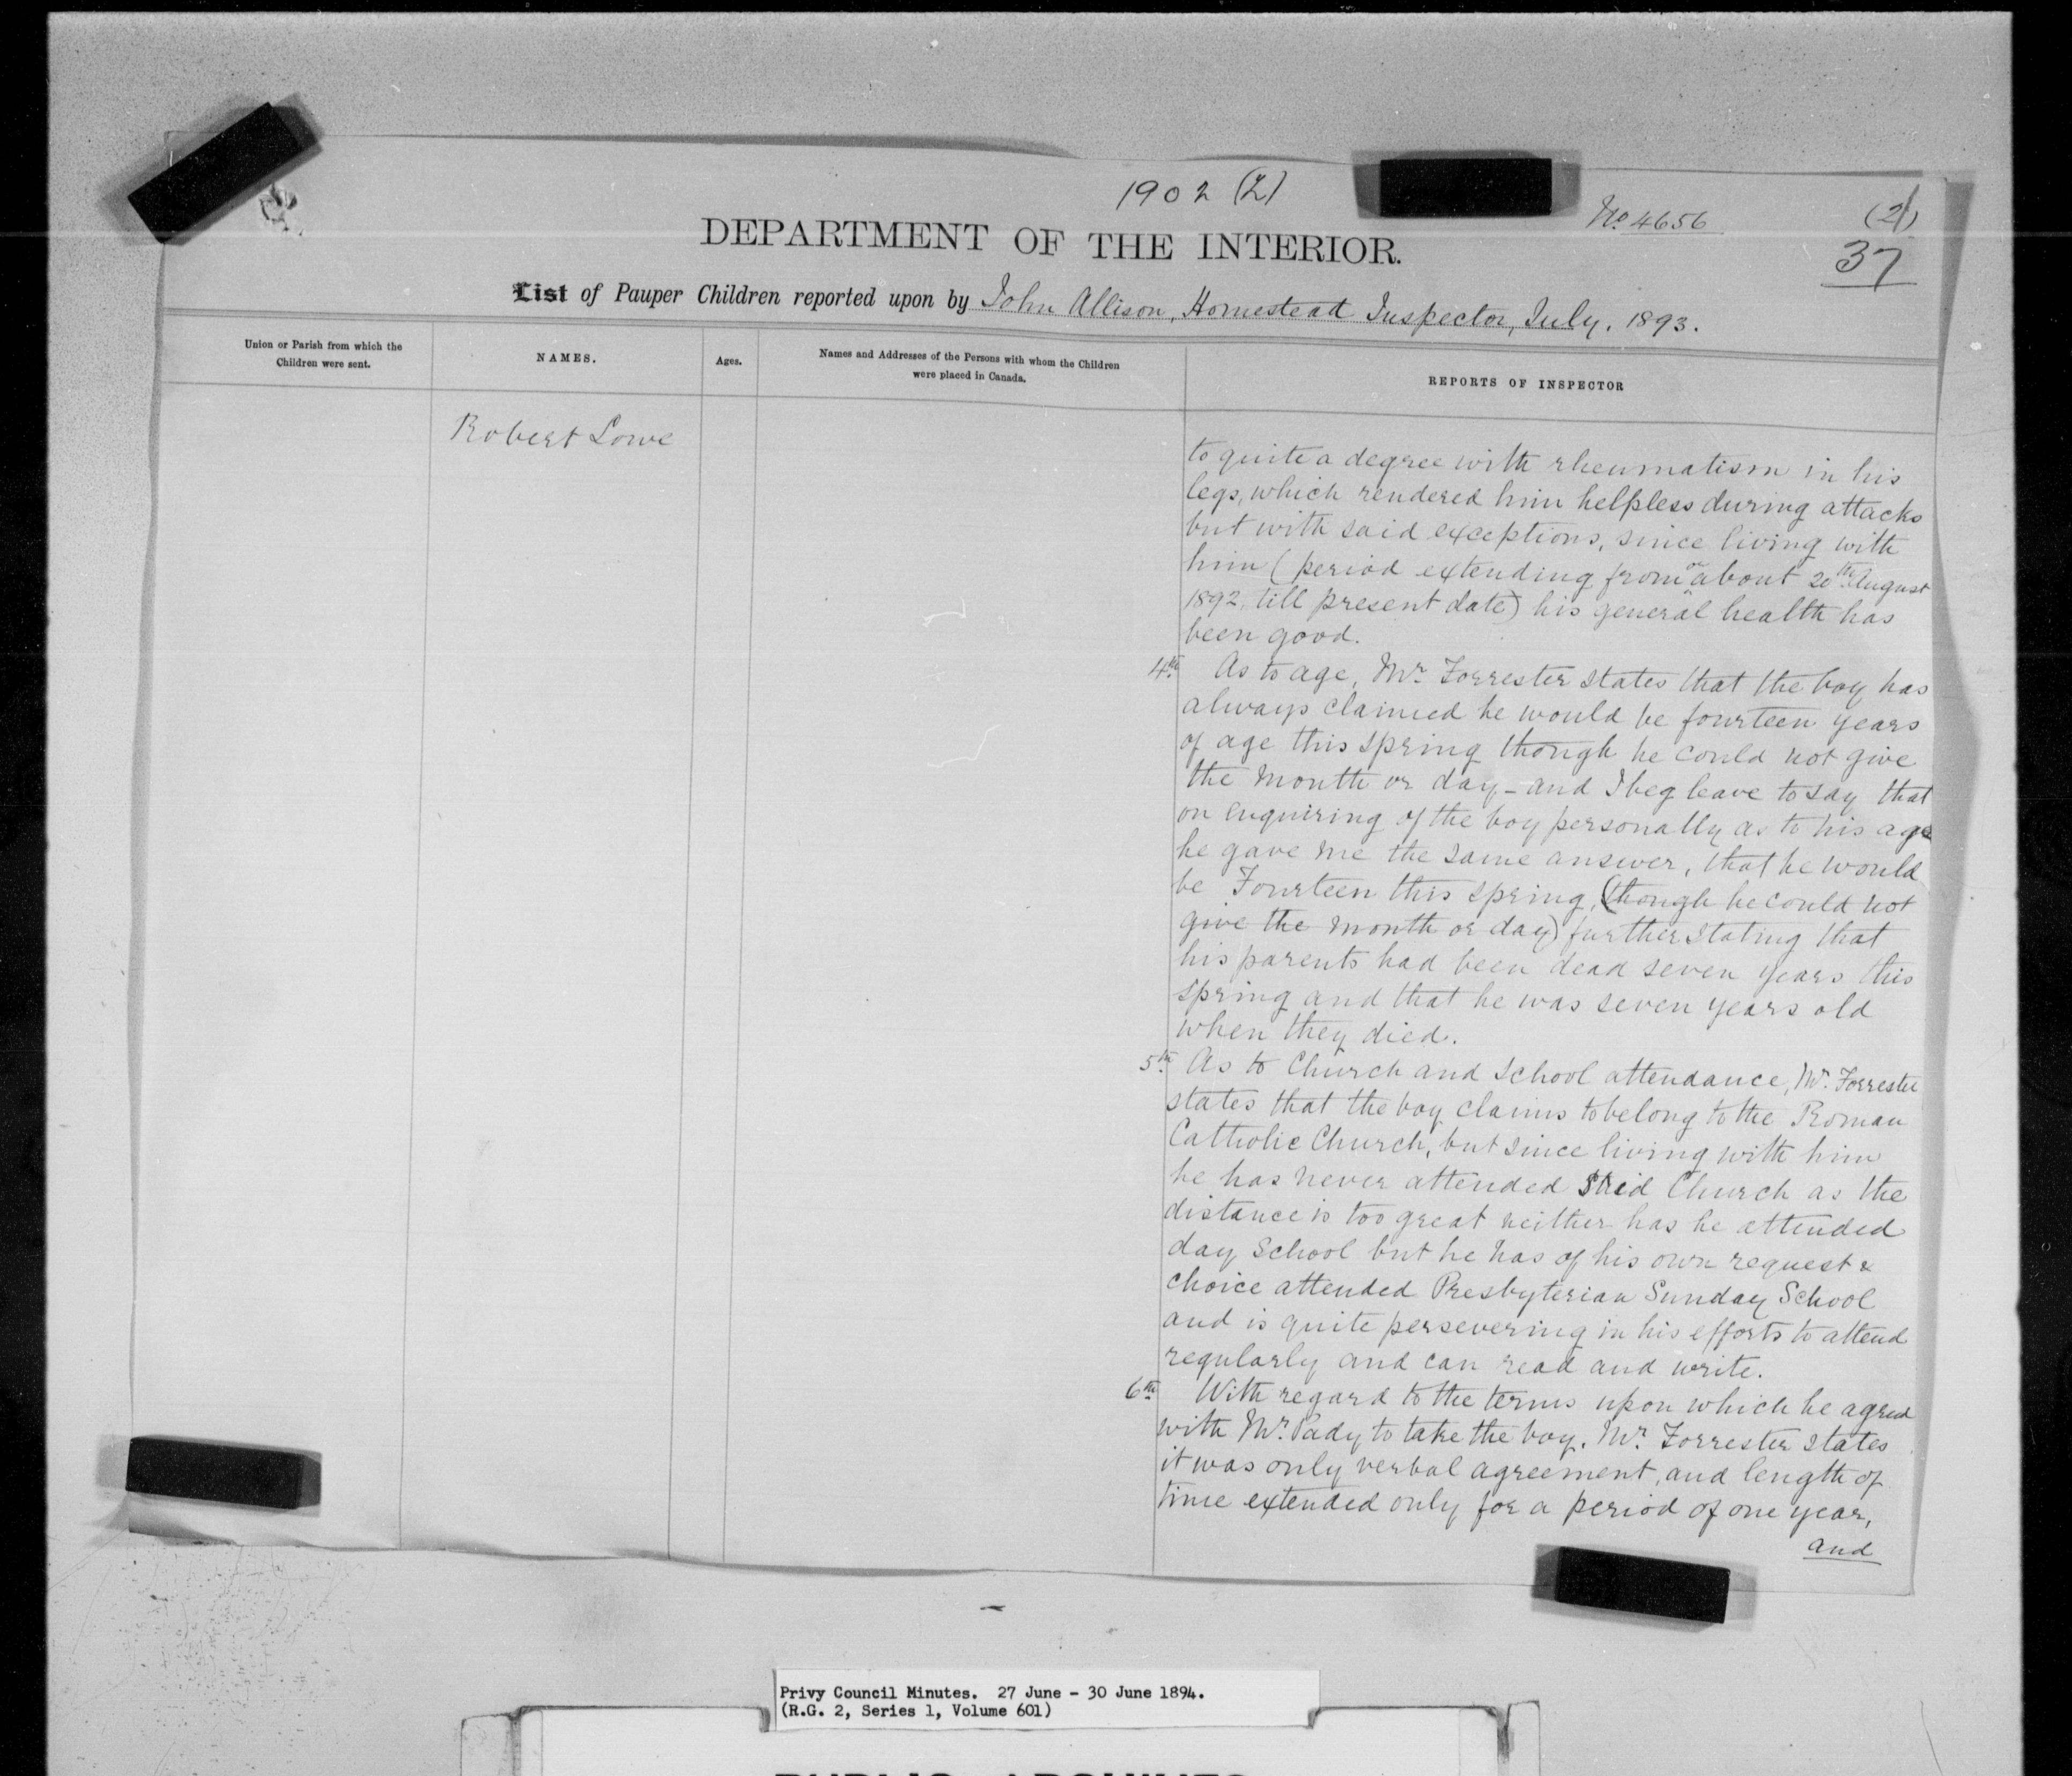 1902 (2)
No. 4656
(2)
37
DEPARTMENT OF THE INTERIOR.
List of Pauper Children reported upon by John Allison, Homestead Inspector, July, 1893.
Union or Parish from which the
Children were sent.
NAMES.
Ages.
Names and Addresses of the Persons with whom the Children
were placed in Canada.
REPORTS OF INSPECTOR
Robert Lowe
to quite a degree with rheumatism in his
legs, which rendered him helpless during attacks
but with said exceptions, since living with
him (period extending from or about 20th August
1892, till present date) his general health has
been good.
4th. As to age, Mr. Forrester states that the boy has
always claimed he would be fourteen years
of age this spring though he could not give
the month or day - and I beg leave to say that
on enquiring of the boy personally as to his age
he gave me the same answer, that he would
be Fourteen this spring, (though he could not
give the month or day) further stating that
his parents had been dead seven years this
spring and that he was seven years old
when they died.
5th. As to Church and School attendance, Mr. Forrester
states that the boy claims to belong to the Roman
Catholic Church, but since living with him
he has never attended said Church as the
distance is too great neither has he attended
day School but he has of his own request &
choice attended Presbyterian Sunday School
and is quite persevering in his efforts to attend
regularly and can read and write.
6th With regard to the terms upon which he agreed
with Mr. Pady to take the boy. Mr. Forrester states
it was only verbal agreement, and length of
time extended only for a period of one year,
and
Privy Council Minutes. 27 June - 30 June 1894.
(R.G. 2, Series 1, Volume 601)
PUBLIC ARCHIVES